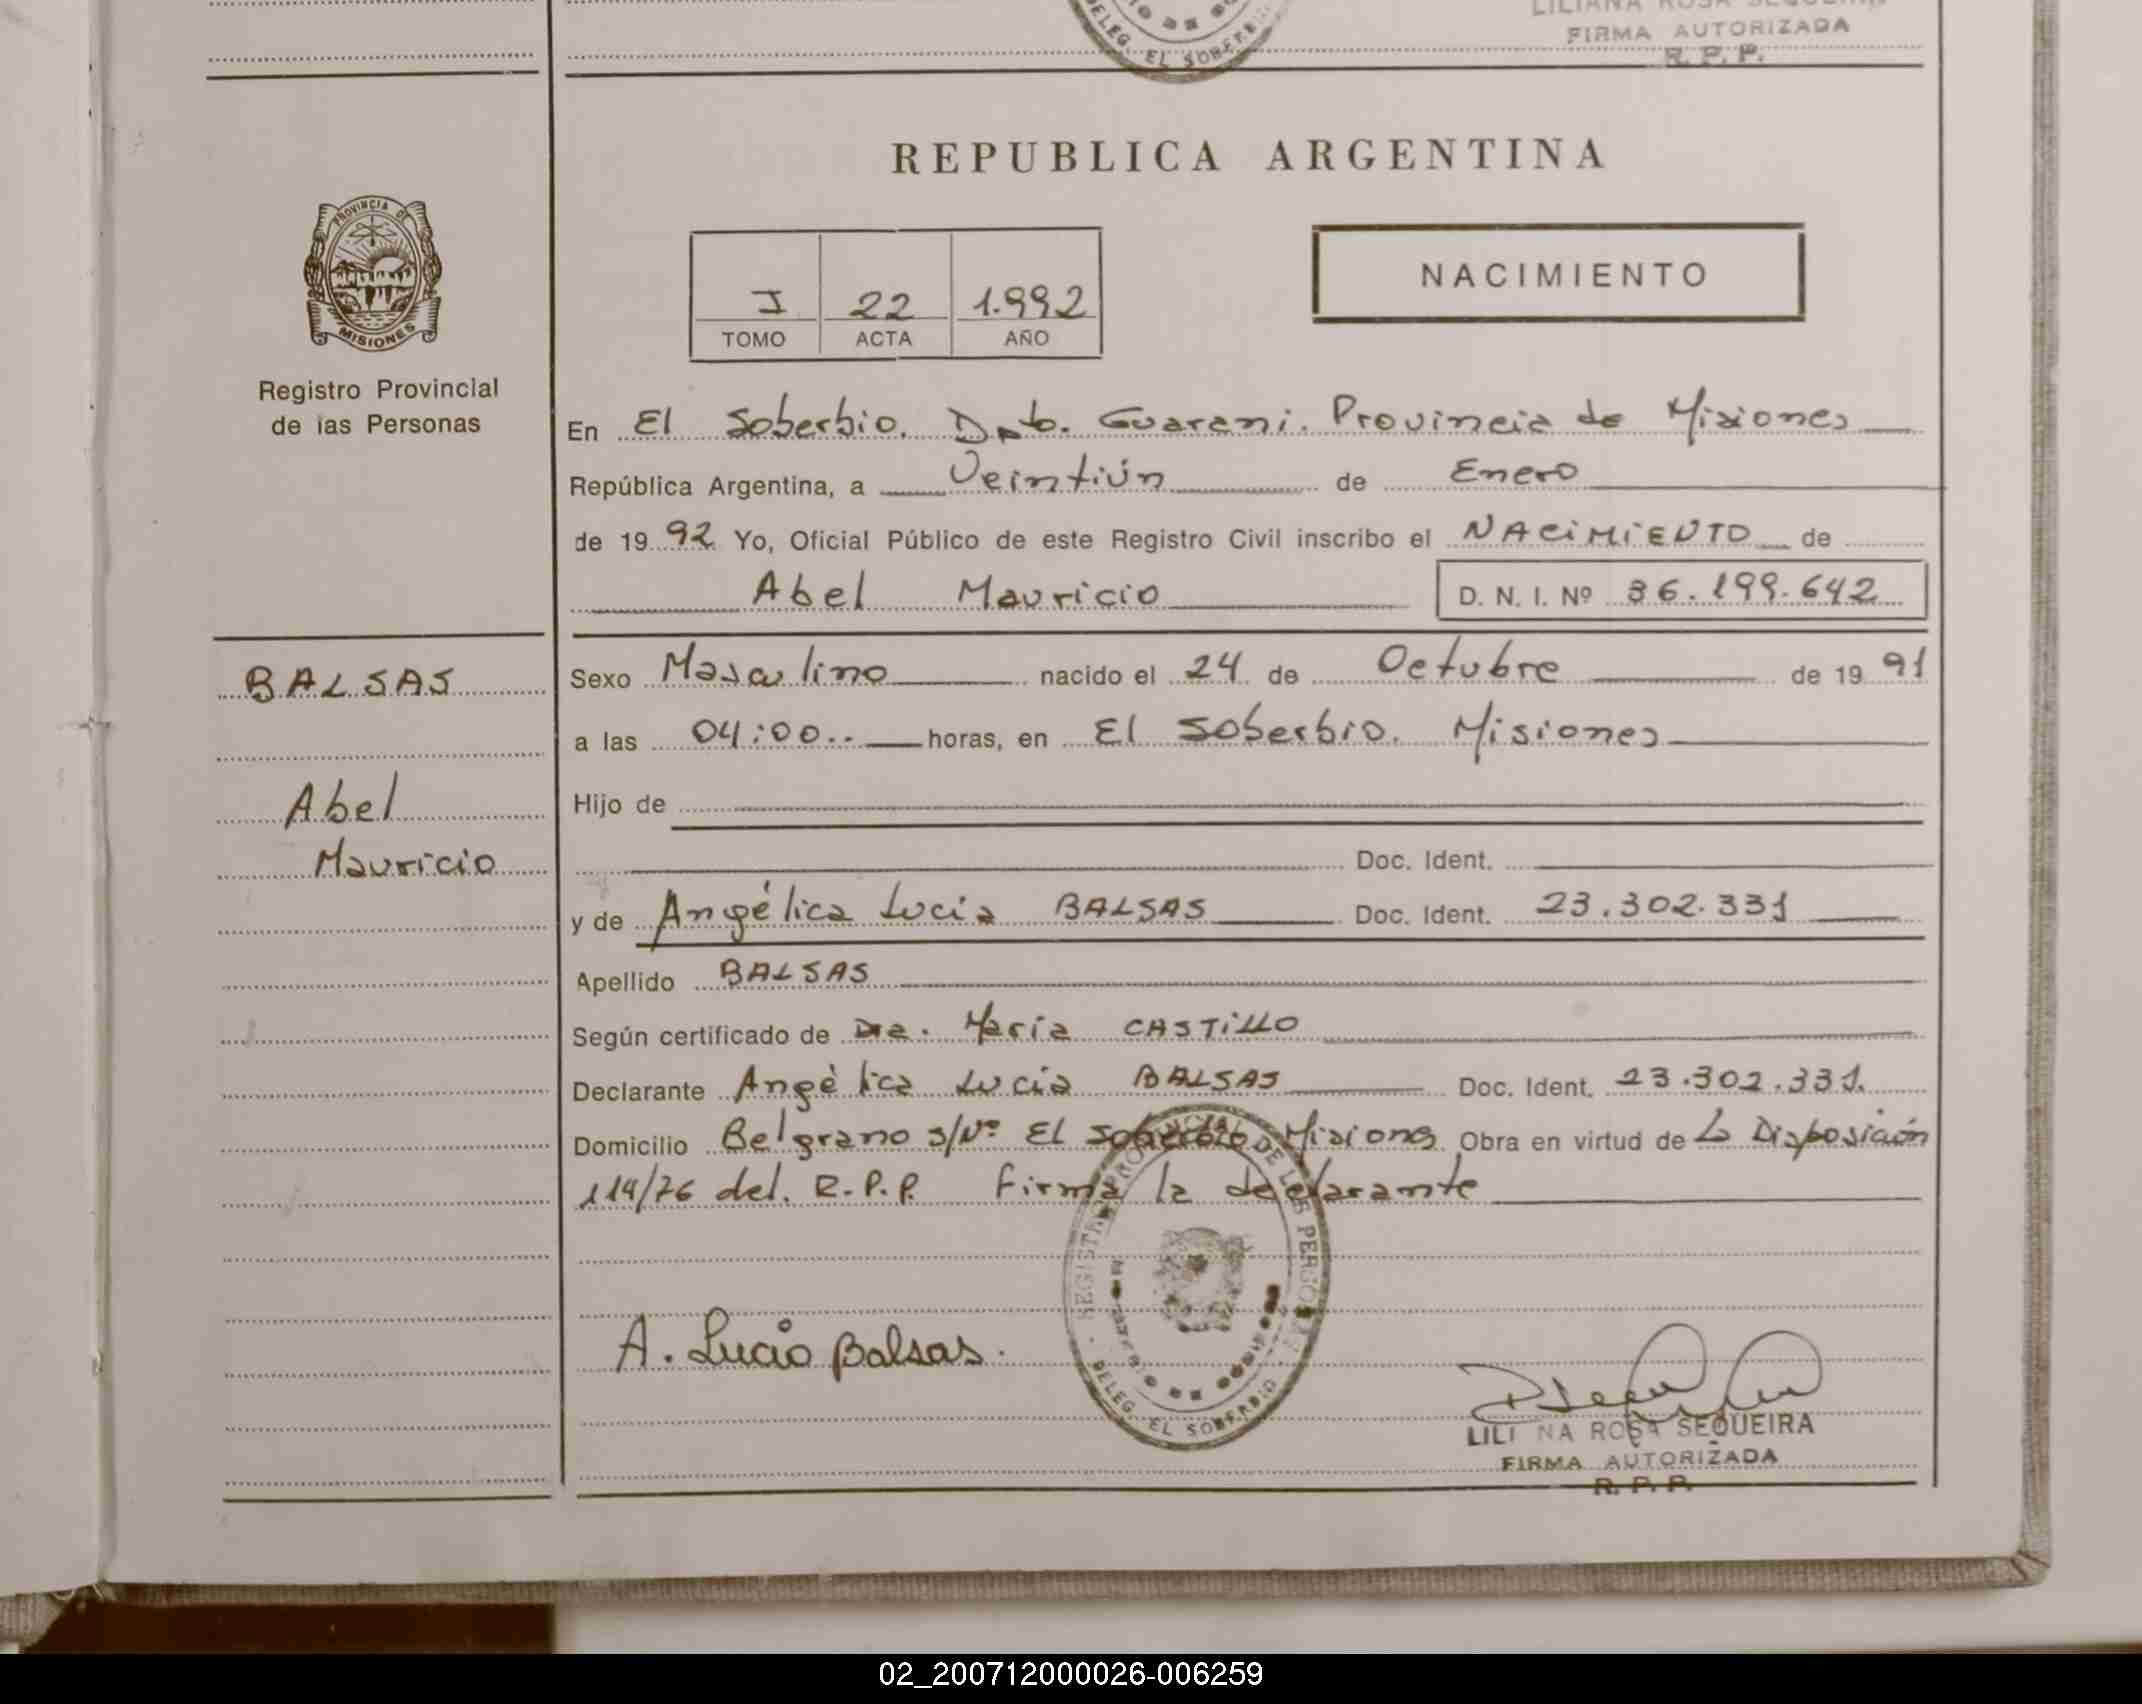 LILIANA ROSA SEQUEIRA
FIRMA AUTORIZADA
R. P. P.
DELEG. EL SOBERBIO
REPUBLICA ARGENTINA
PROVINCIA DE
MISIONES
Registro Provincial
de las Personas
I 22 1.992
TOMO ACTA AÑO
NACIMIENTO
En El Soberbio. Dpto. Guarani. Provincia de Misiones
República Argentina, a Veintiún de Enero
de 19 92 Yo, Oficial Público de este Registro Civil inscribo el NACIMIENTO de
Abel Mauricio D. N. I. Nº 36.199.642
BALSAS
Abel
Mauricio
Sexo Masculino nacido el 24 de Octubre de 19 91
a las 04:00.. horas, en El Soberbio. Misiones
Hijo de
Doc. Ident.
y de Angélica Lucia BALSAS Doc. Ident. 23.302.331
Apellido BALSAS
Según certificado de Dra. María CASTILLO
Declarante Angèlica Lucia BALSAS Doc. Ident. 23.302.331.
Domicilio Belgrano s/Nº El Soberbio Misiones Obra en virtud de La Disposición
114/76 del. R.P.P. Firma la declarante
REGISTRO PROVINCIAL DE LAS PERSONAS
DELEG. EL SOBERBIO
A. Lucia Balsas.
LILI NA ROSA SEQUEIRA
FIRMA AUTORIZADA
R. P. P.
02_200712000026-006259